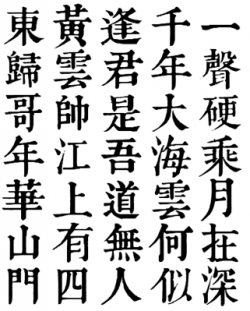 一聲硬乘月在深
千年大海雲何似
逢君是吾道無人
黃雲帥江上有四
東歸哥年華山門